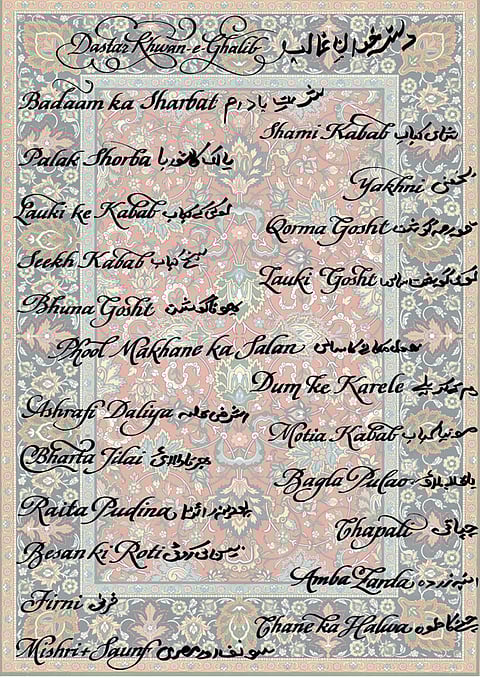 Dastar Khwan-e-Ghalib دستر خوانِ غالب
Badaam ka Sharbat
Shami Kabab شامی کباب
Palak Shorba پالک کا شوربا
Yakhni یخنی
Lauki ke Kabab لوکی کے کباب
Qorma Gosht قورمہ گوشت
Seekh Kabab سیخ کباب
Lauki Gosht
Bhuna Gosht بھونا گوشت
Phool Makhane ka Salan
Dum ke Karele دم کے کریلے
Ashrafi Daliya
Motia Kabab موتیا کباب
Bharta Jilai
Bagla Pulao
Raita Pudina
Chapati چپاتی
Besan ki Roti بیسن کی روٹی
Amba Zarda
Firni فرنی
Chane ka Halwa چنے کا حلوہ
Mishri + Saunf سونف اور مصری